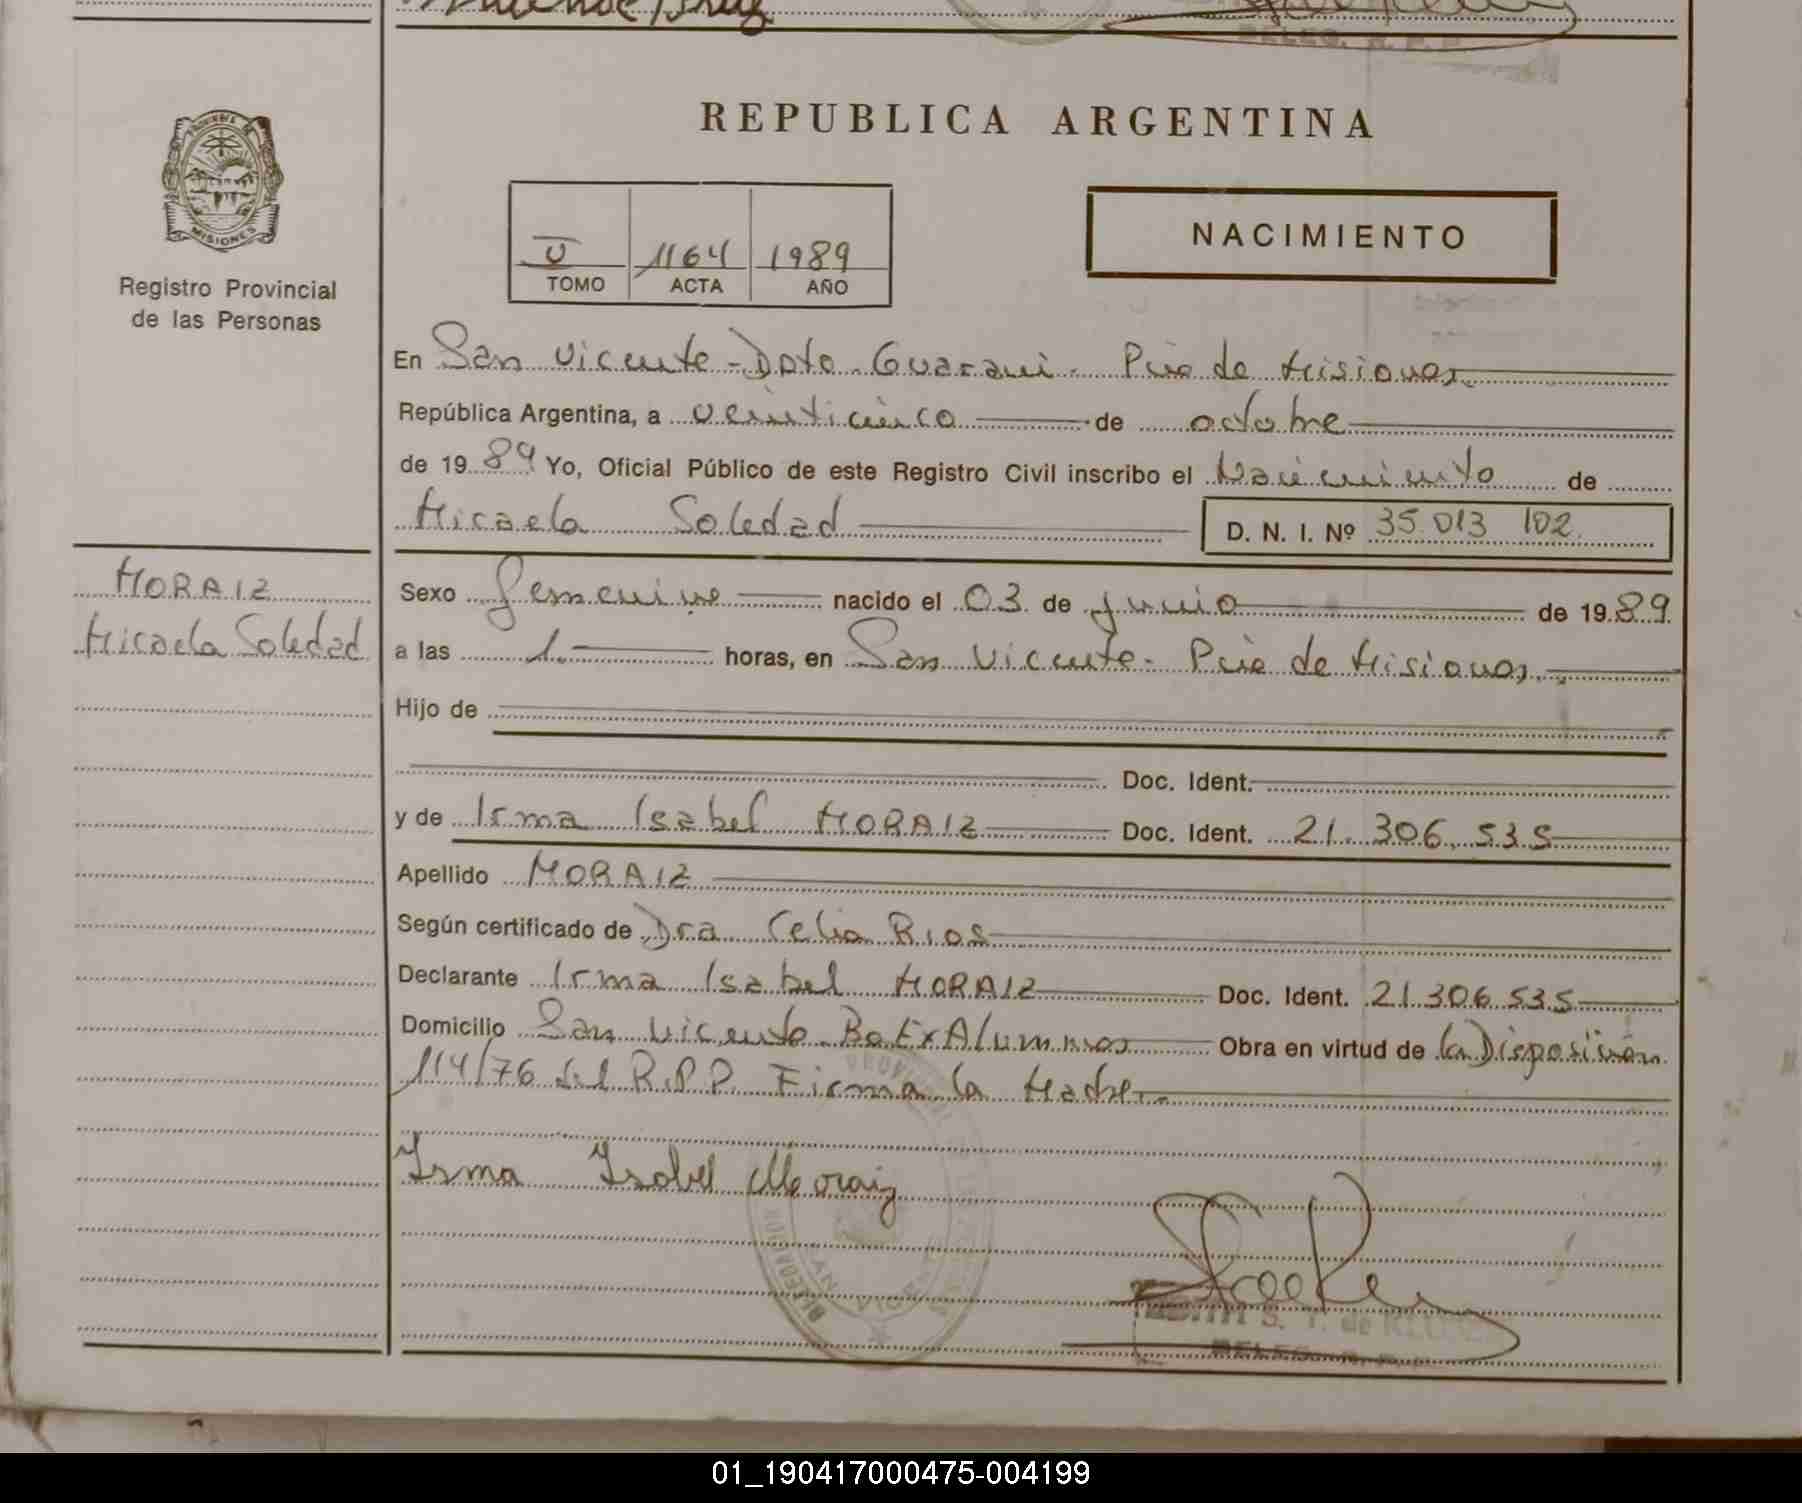 REPUBLICA ARGENTINA
PROVINCIA DE
MISIONES
Registro Provincial
de las Personas
U 1164 1989
TOMO ACTA AÑO
NACIMIENTO
En San Vicente - Dpto. Guarani. Pcia de Misiones
República Argentina, a veinticinco de octubre
de 1989 Yo, Oficial Público de este Registro Civil inscribo el Nacimiento de
Micaela Soledad D. N. I. Nº 35.013 102
MORAIZ
Micaela Soledad
Sexo femenino nacido el 03 de junio de 1989
a las 1. horas, en San Vicente - Pcia de Misiones
Hijo de
Doc. Ident.
y de Irma Isabel MORAIZ Doc. Ident. 21.306.535
Apellido MORAIZ
Según certificado de Dra Celia Rios
Declarante Irma Isabel MORAIZ Doc. Ident. 21.306.535
Domicilio San Vicente Bo Ex Alumnos Obra en virtud de la Disposición
114/76 del R.P.P. Firma la Madre.
Irma Isabel Moraiz
S. T. de
DELEG. R. P. P.
01_190417000475-004199